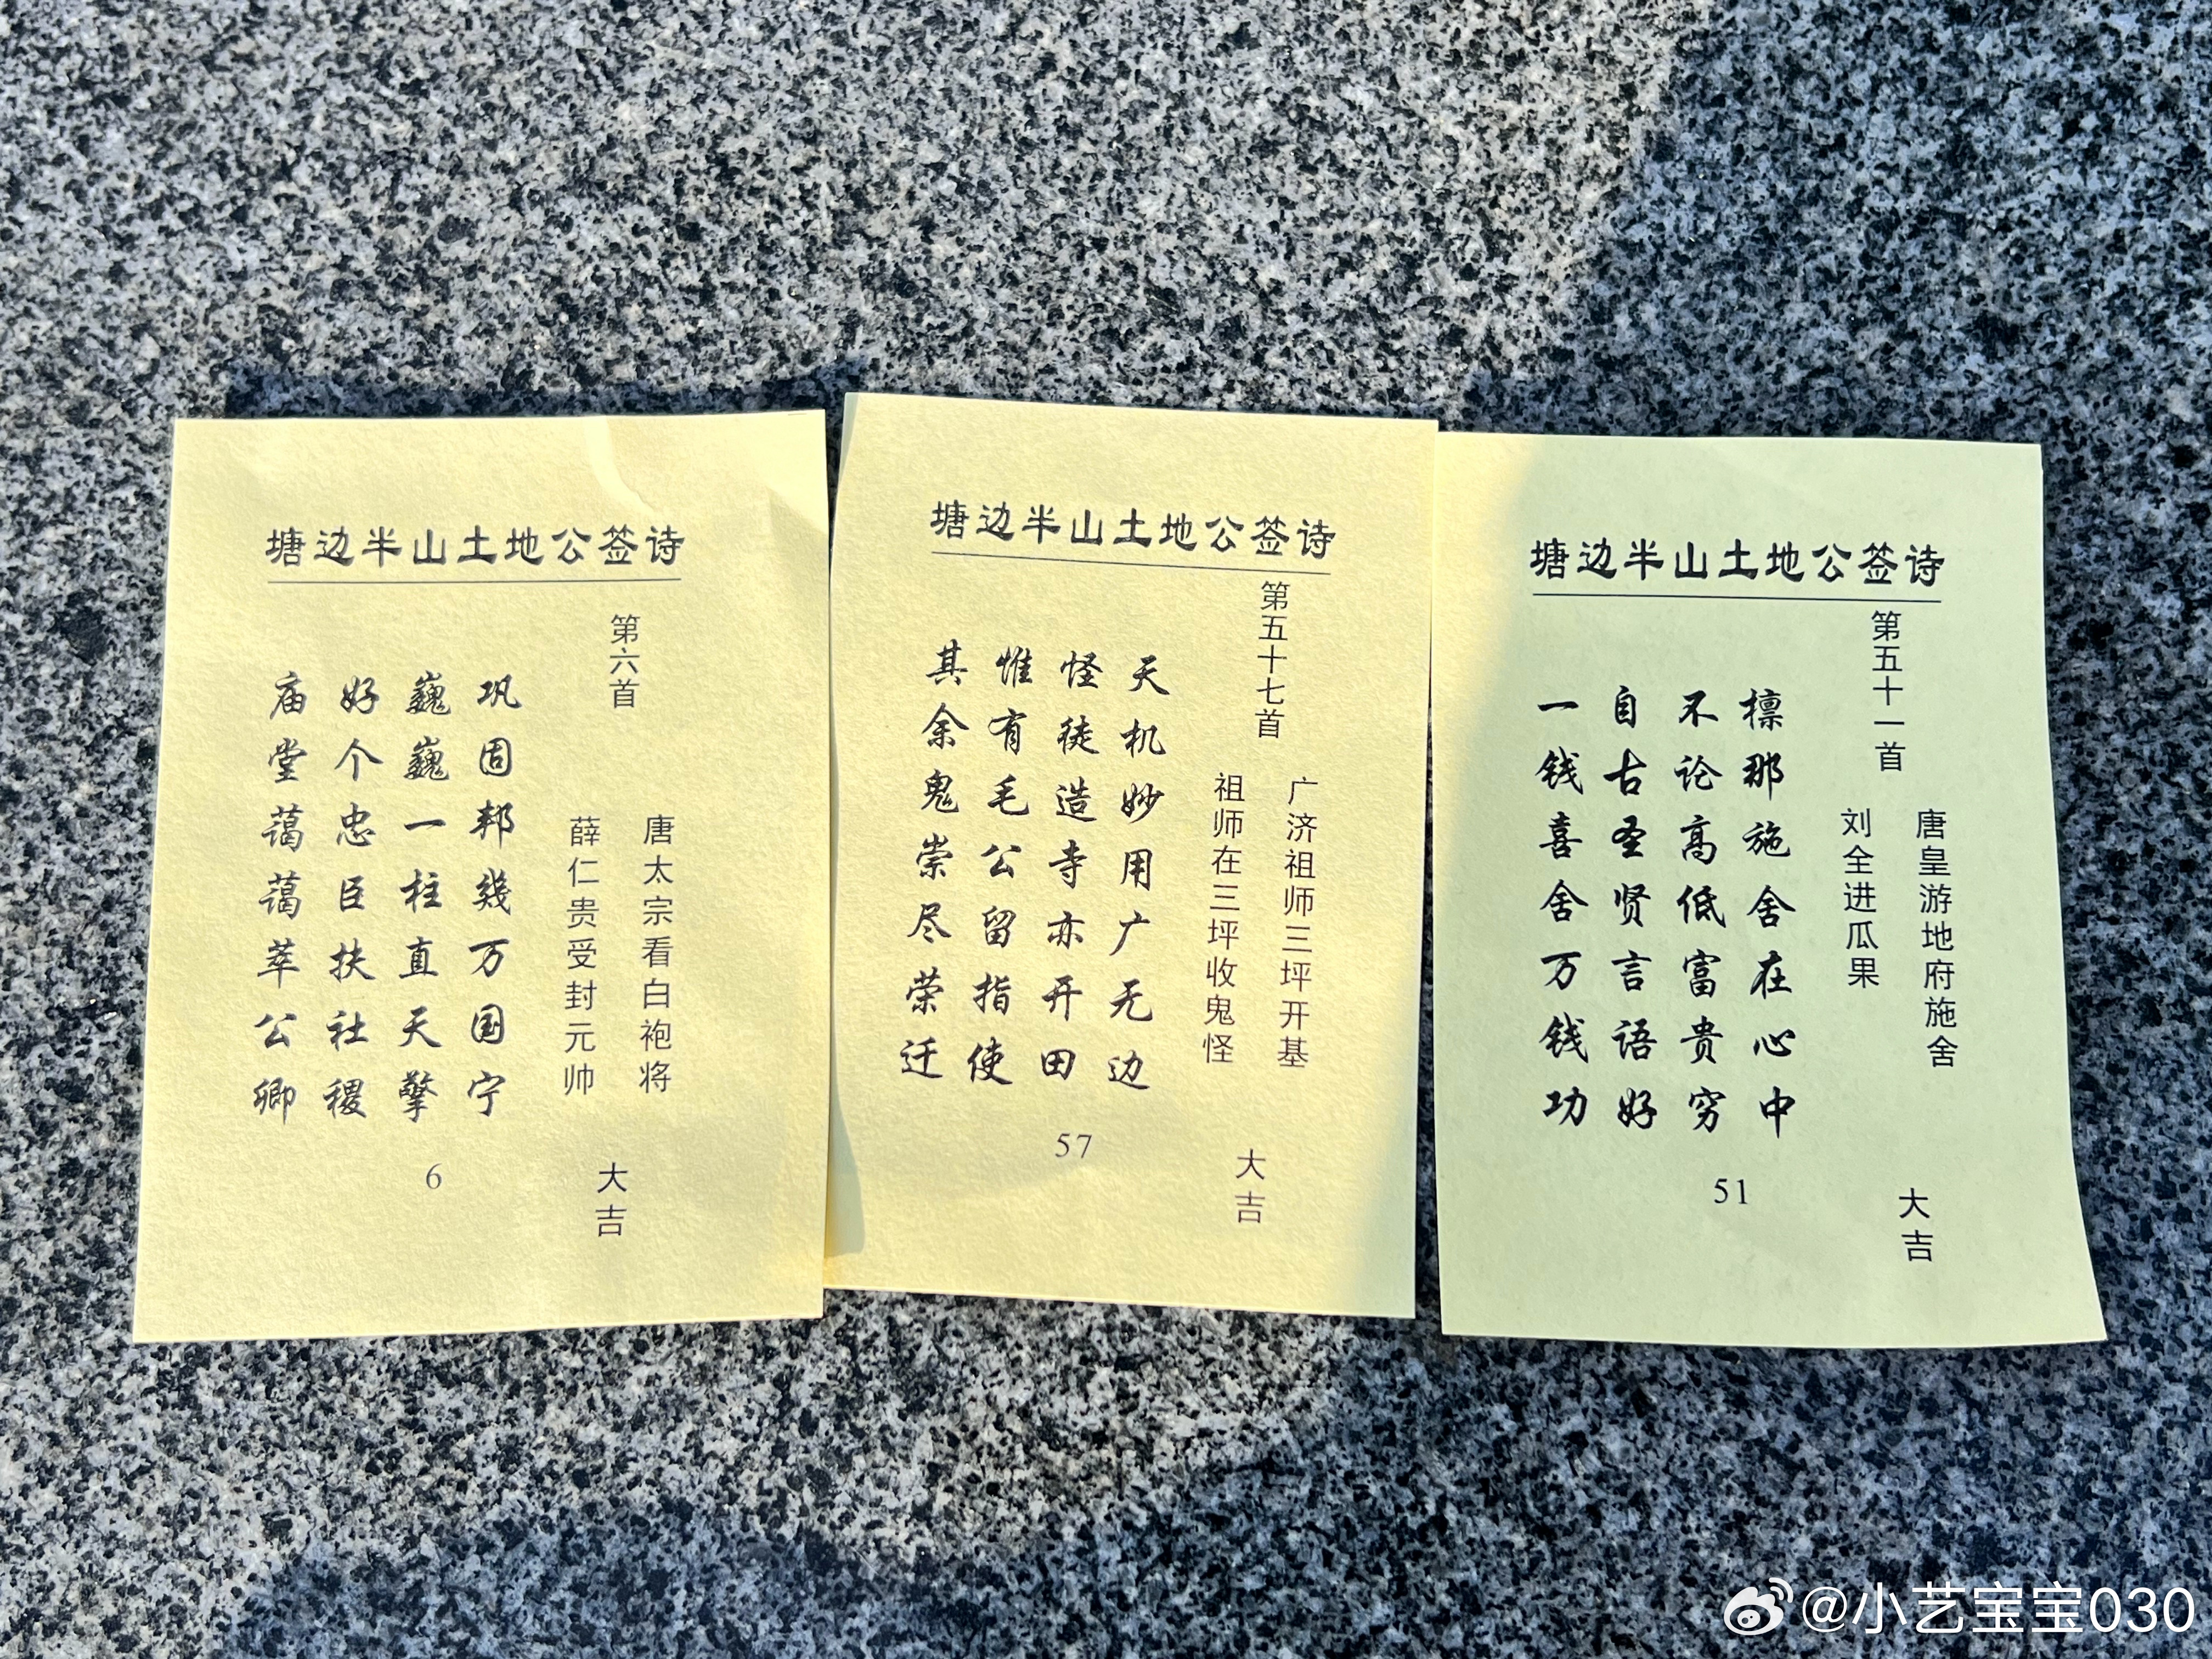 塘边半山土地公签诗
第六首
唐太宗看白袍将
薛仁贵受封元帅
大吉
巩固邦畿万国宁
巍巍一柱直天擎
好个忠臣扶社稷
庙堂蔼蔼萃公卿
6
塘边半山土地公签诗
第五十七首
广济祖师三坪开基
祖师在三坪收鬼怪
大吉
天机妙用广无边
怪徒造寺亦开田
惟有毛公留指使
其余鬼祟尽荣迁
57
塘边半山土地公签诗
第五十一首
唐皇游地府施舍
刘全进瓜果
大吉
檩那施舍在心中
不论高低富贵穷
自古圣贤言语好
一钱喜舍万钱功
51
@小艺宝宝030